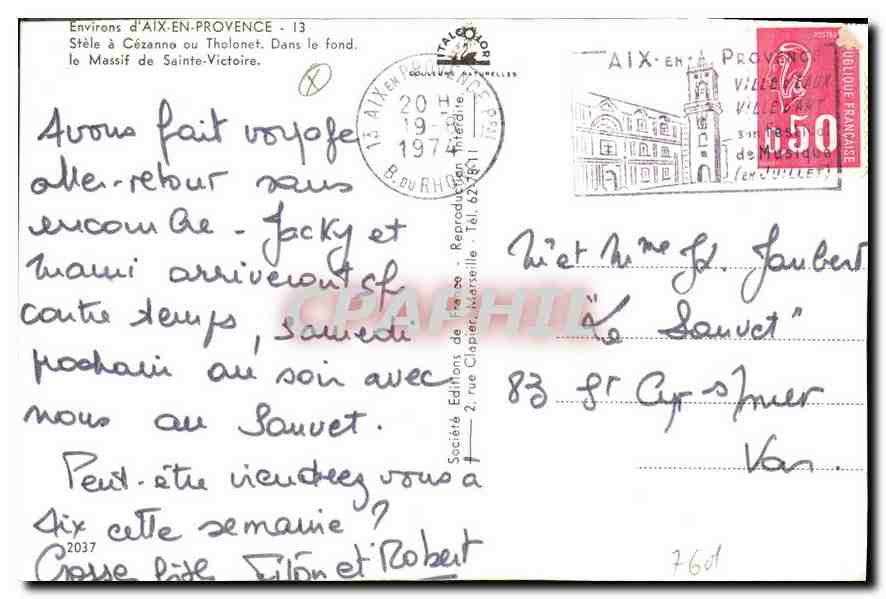 Environs d'AIX-EN-PROVENCE - 13
Stèle à Cézanne ou Tholonet. Dans le fond.
le Massif de Sainte-Victoire.
ITALCOLOR
COULEURS NATURELLES
13 AIX EN PROVENCE PPAL
20 H
19-8
1974
B. DU RHONE
AIX-EN-PROVENCE
VILLE D'EAUX
VILLE D'ART
son Festival
de Musique
(en JUILLET)
POSTES
0,50
REPUBLIQUE FRANÇAISE
Avons fait voyage
aller-retour sans
encombre - Jacky et
Mami arriveront sf
contre temps, samedi
prochain au soir avec
nous au Sauvet.
Peut-être viendrez vous à
Aix cette semaine ?
et Robert
2037
Société Editions de France - Reproduction Interdite
2, rue Clapier, Marseille - Tél. 62-78-11
Mr et Mme Jd. Jaubert
"Le Sauvet"
83 St Cyr s/mer
Var.
7601
CPAPHIL